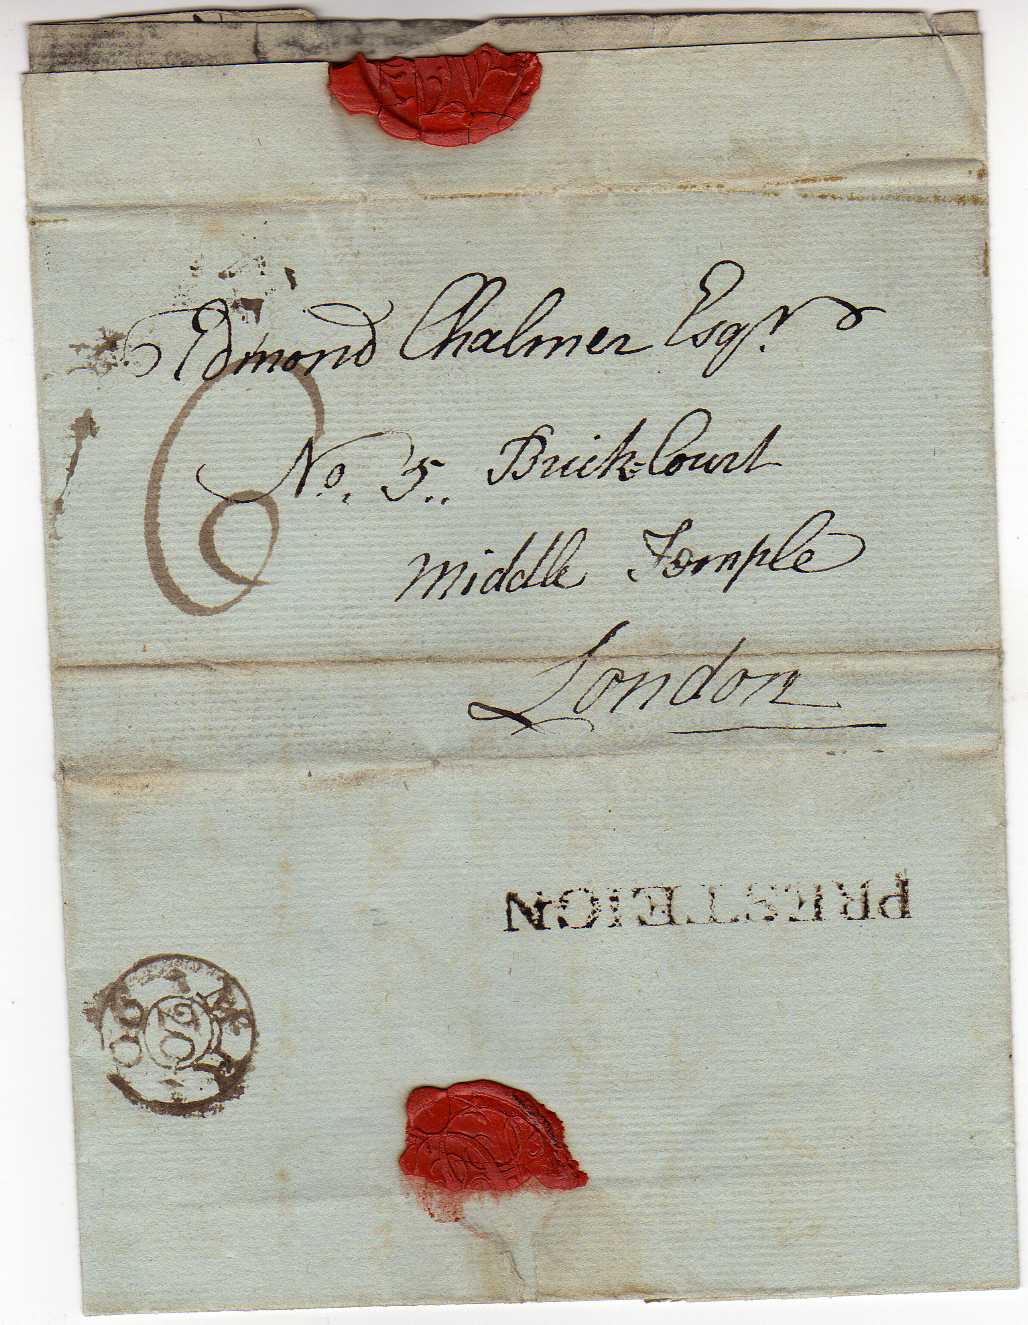 Edmond Chalmer Esqr.
No. 5. Brick-Court
Middle Temple
London
6
PRESTEIGN